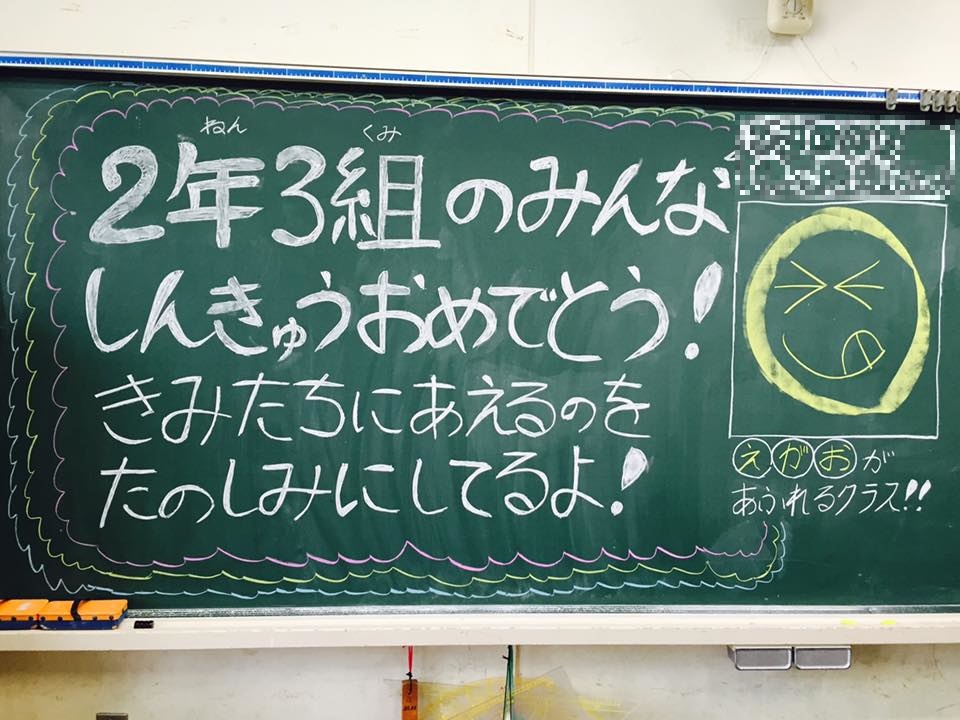 ねん くみ
2年3組のみんな
しんきゅうおめでとう!
きみたちにあえるのを
たのしみにしてるよ!
えがおが
あふれるクラス!!